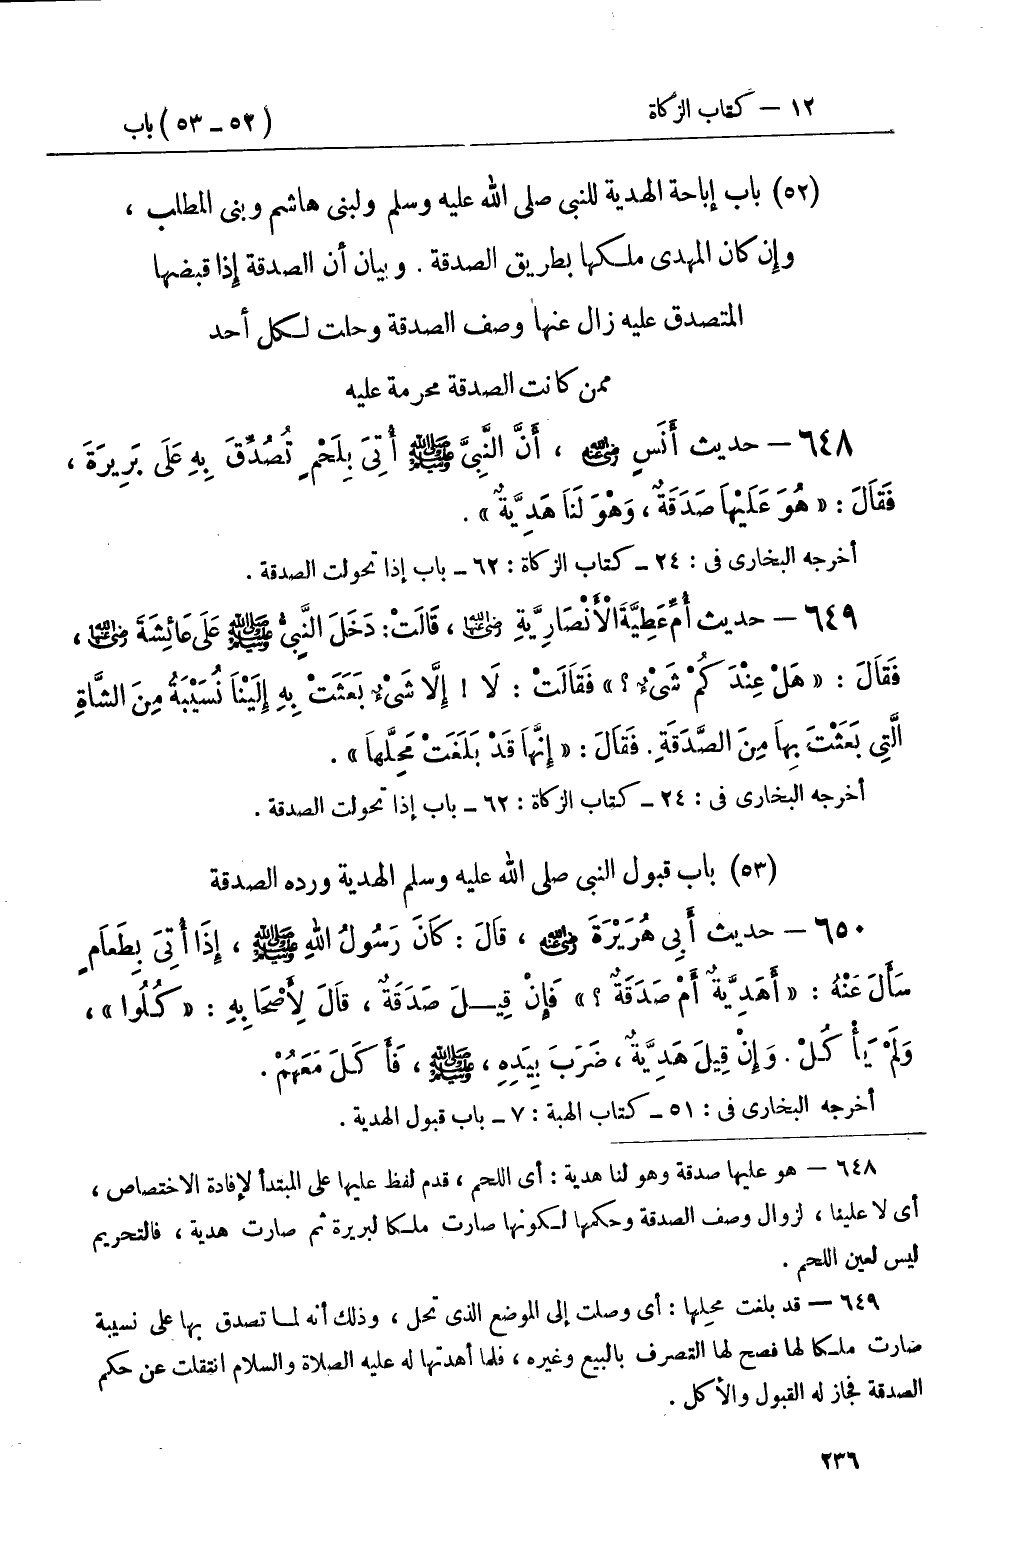 ١٢ — كتاب الزكاة
(٥٢ – ٥٣) باب
(٥٢) باب إباحة الهدية للنبى صلى الله عليه وسلم ولبنى هاشم وبنى المطلب ،
وإن كان المهدى ملكها بطريق الصدقة . وبيان أن الصدقة إذا قبضها
المتصدق عليه زال عنها وصف الصدقة وحلت لكل أحد
ممن كانت الصدقة محرمة عليه
٦٤٨ – حديث أَنَسٍ رضي الله عنه ، أَنَّ النَّبِيَّ ﷺ أُتِىَ بِلَحْمٍ تُصُدِّقَ بِهِ عَلَى بَرِيرَةَ ،
فَقَالَ : « هُوَ عَلَيْهَا صَدَقَةٌ ، وَهْوَ لَنَا هَدِيَّةٌ » .
أخرجه البخارى فى : ٢٤ – كتاب الزكاة : ٦٢ – باب إذا تحولت الصدقة .
٦٤٩ – حديث أُمِّ عَطِيَّةَ الْأَنْصَارِيَّةِ رضي الله عنها ، قَالَتْ: دَخَلَ النَّبِيُّ ﷺ عَلَى عَائِشَةَ رضي الله عنها ،
فَقَالَ : « هَلْ عِنْدَكُمْ شَىْءٌ ؟ » فَقَالَتْ : لَا ! إِلَّا شَىْءٌ بَعَثَتْ بِهِ إِلَيْنَا نُسَيْبَةُ مِنَ الشَّاةِ
الَّتِي بَعَثْتَ بِهَا مِنَ الصَّدَقَةِ . فَقَالَ : « إِنَّهَا قَدْ بَلَغَتْ مَحِلَّهَا » .
أخرجه البخارى فى : ٢٤ – كتاب الزكاة : ٦٢ – باب إذا تحولت الصدقة .
(٥٣) باب قبول النبى صلى الله عليه وسلم الهدية ورده الصدقة
٦٥٠ – حديث أَبِى هُرَيْرَةَ رضي الله عنه ، قَالَ : كَانَ رَسُولُ اللهِ ﷺ ، إِذَا أُتِىَ بِطَعَامٍ
سَأَلَ عَنْهُ : « أَهَدِيَّةٌ أَمْ صَدَقَةٌ ؟ » فَإِنْ قِيلَ صَدَقَةٌ ، قَالَ لِأَصْحَابِهِ : « كُلُوا » ،
وَلَمْ يَأْكُلْ . وَإِنْ قِيلَ هَدِيَّةٌ ، ضَرَبَ بِيَدِهِ ، ﷺ ، فَأَكَلَ مَعَهُمْ .
أخرجه البخارى فى : ٥١ – كتاب الهبة : ٧ – باب قبول الهدية .
٦٤٨ – هو عليها صدقة وهو لنا هدية : أى اللحم ، قدم لفظ عليها على المبتدأ لإفادة الاختصاص ،
أى لا علينا ، لزوال وصف الصدقة وحكمها لكونها صارت ملكا لبريرة ثم صارت هدية ، فالتحريم
ليس لعين اللحم .
٦٤٩ – قد بلغت محلها : أى وصلت إلى الموضع الذى تحل ، وذلك أنه لما تصدق بها على نسيبة
صارت ملكا لها فصح لها التصرف بالبيع وغيره ، فلما أهدتها له عليه الصلاة والسلام انتقلت عن حكم
الصدقة فجاز له القبول والأكل .
٢٣٦